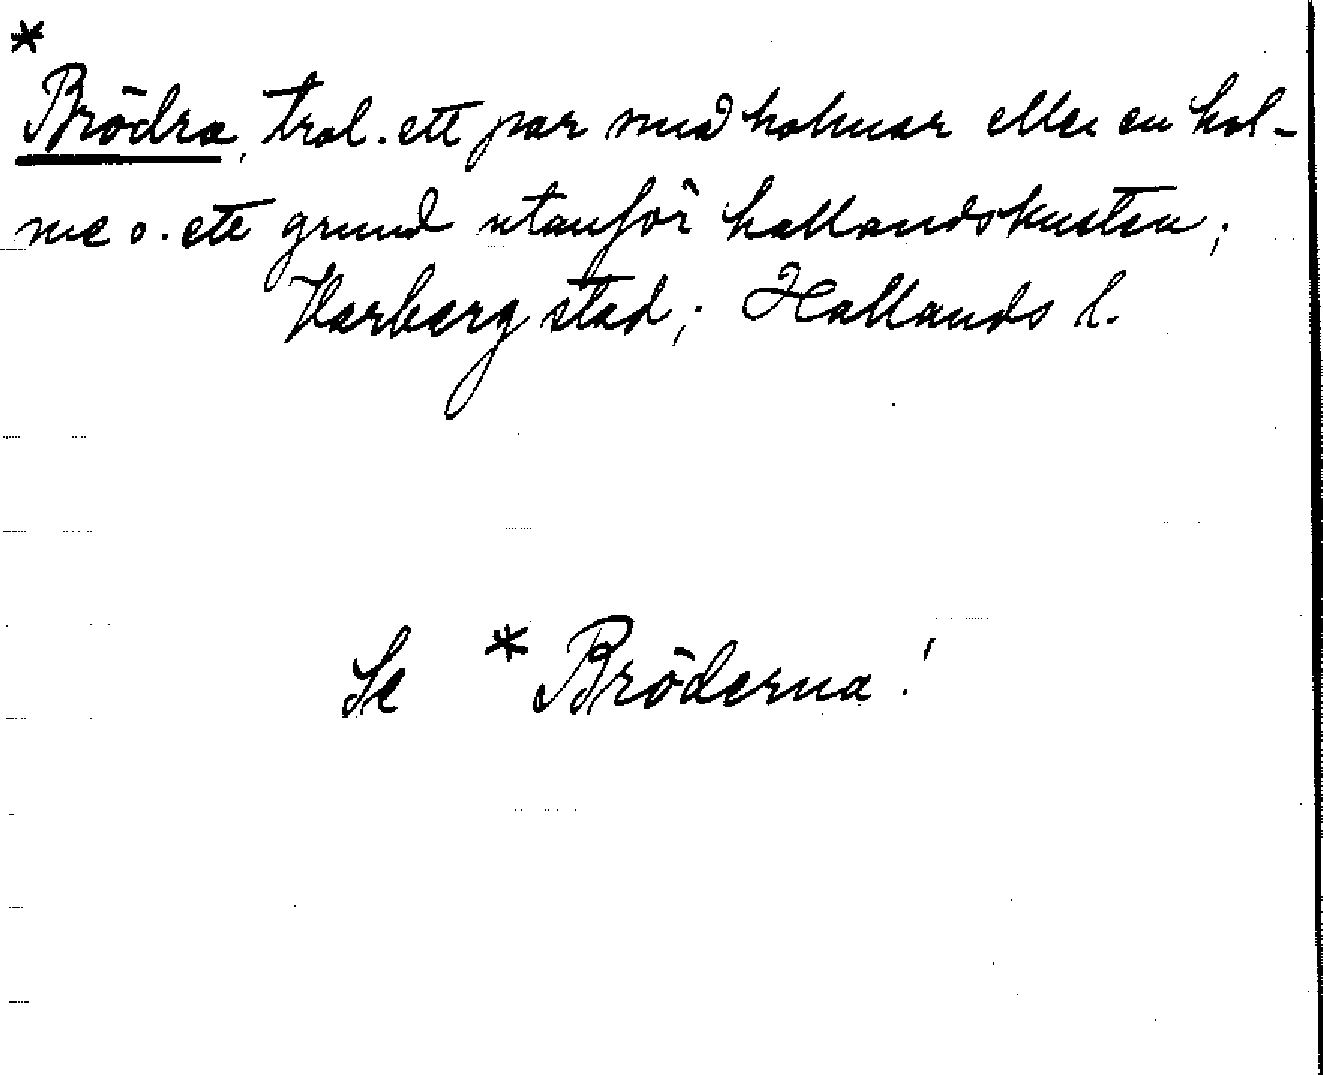 *
Brödra, trol. ett par med holmar eller en hol-
me o. ett grund utanför hallandskusten;
Varberg stad; Hallands l.
Se *Bröderna!